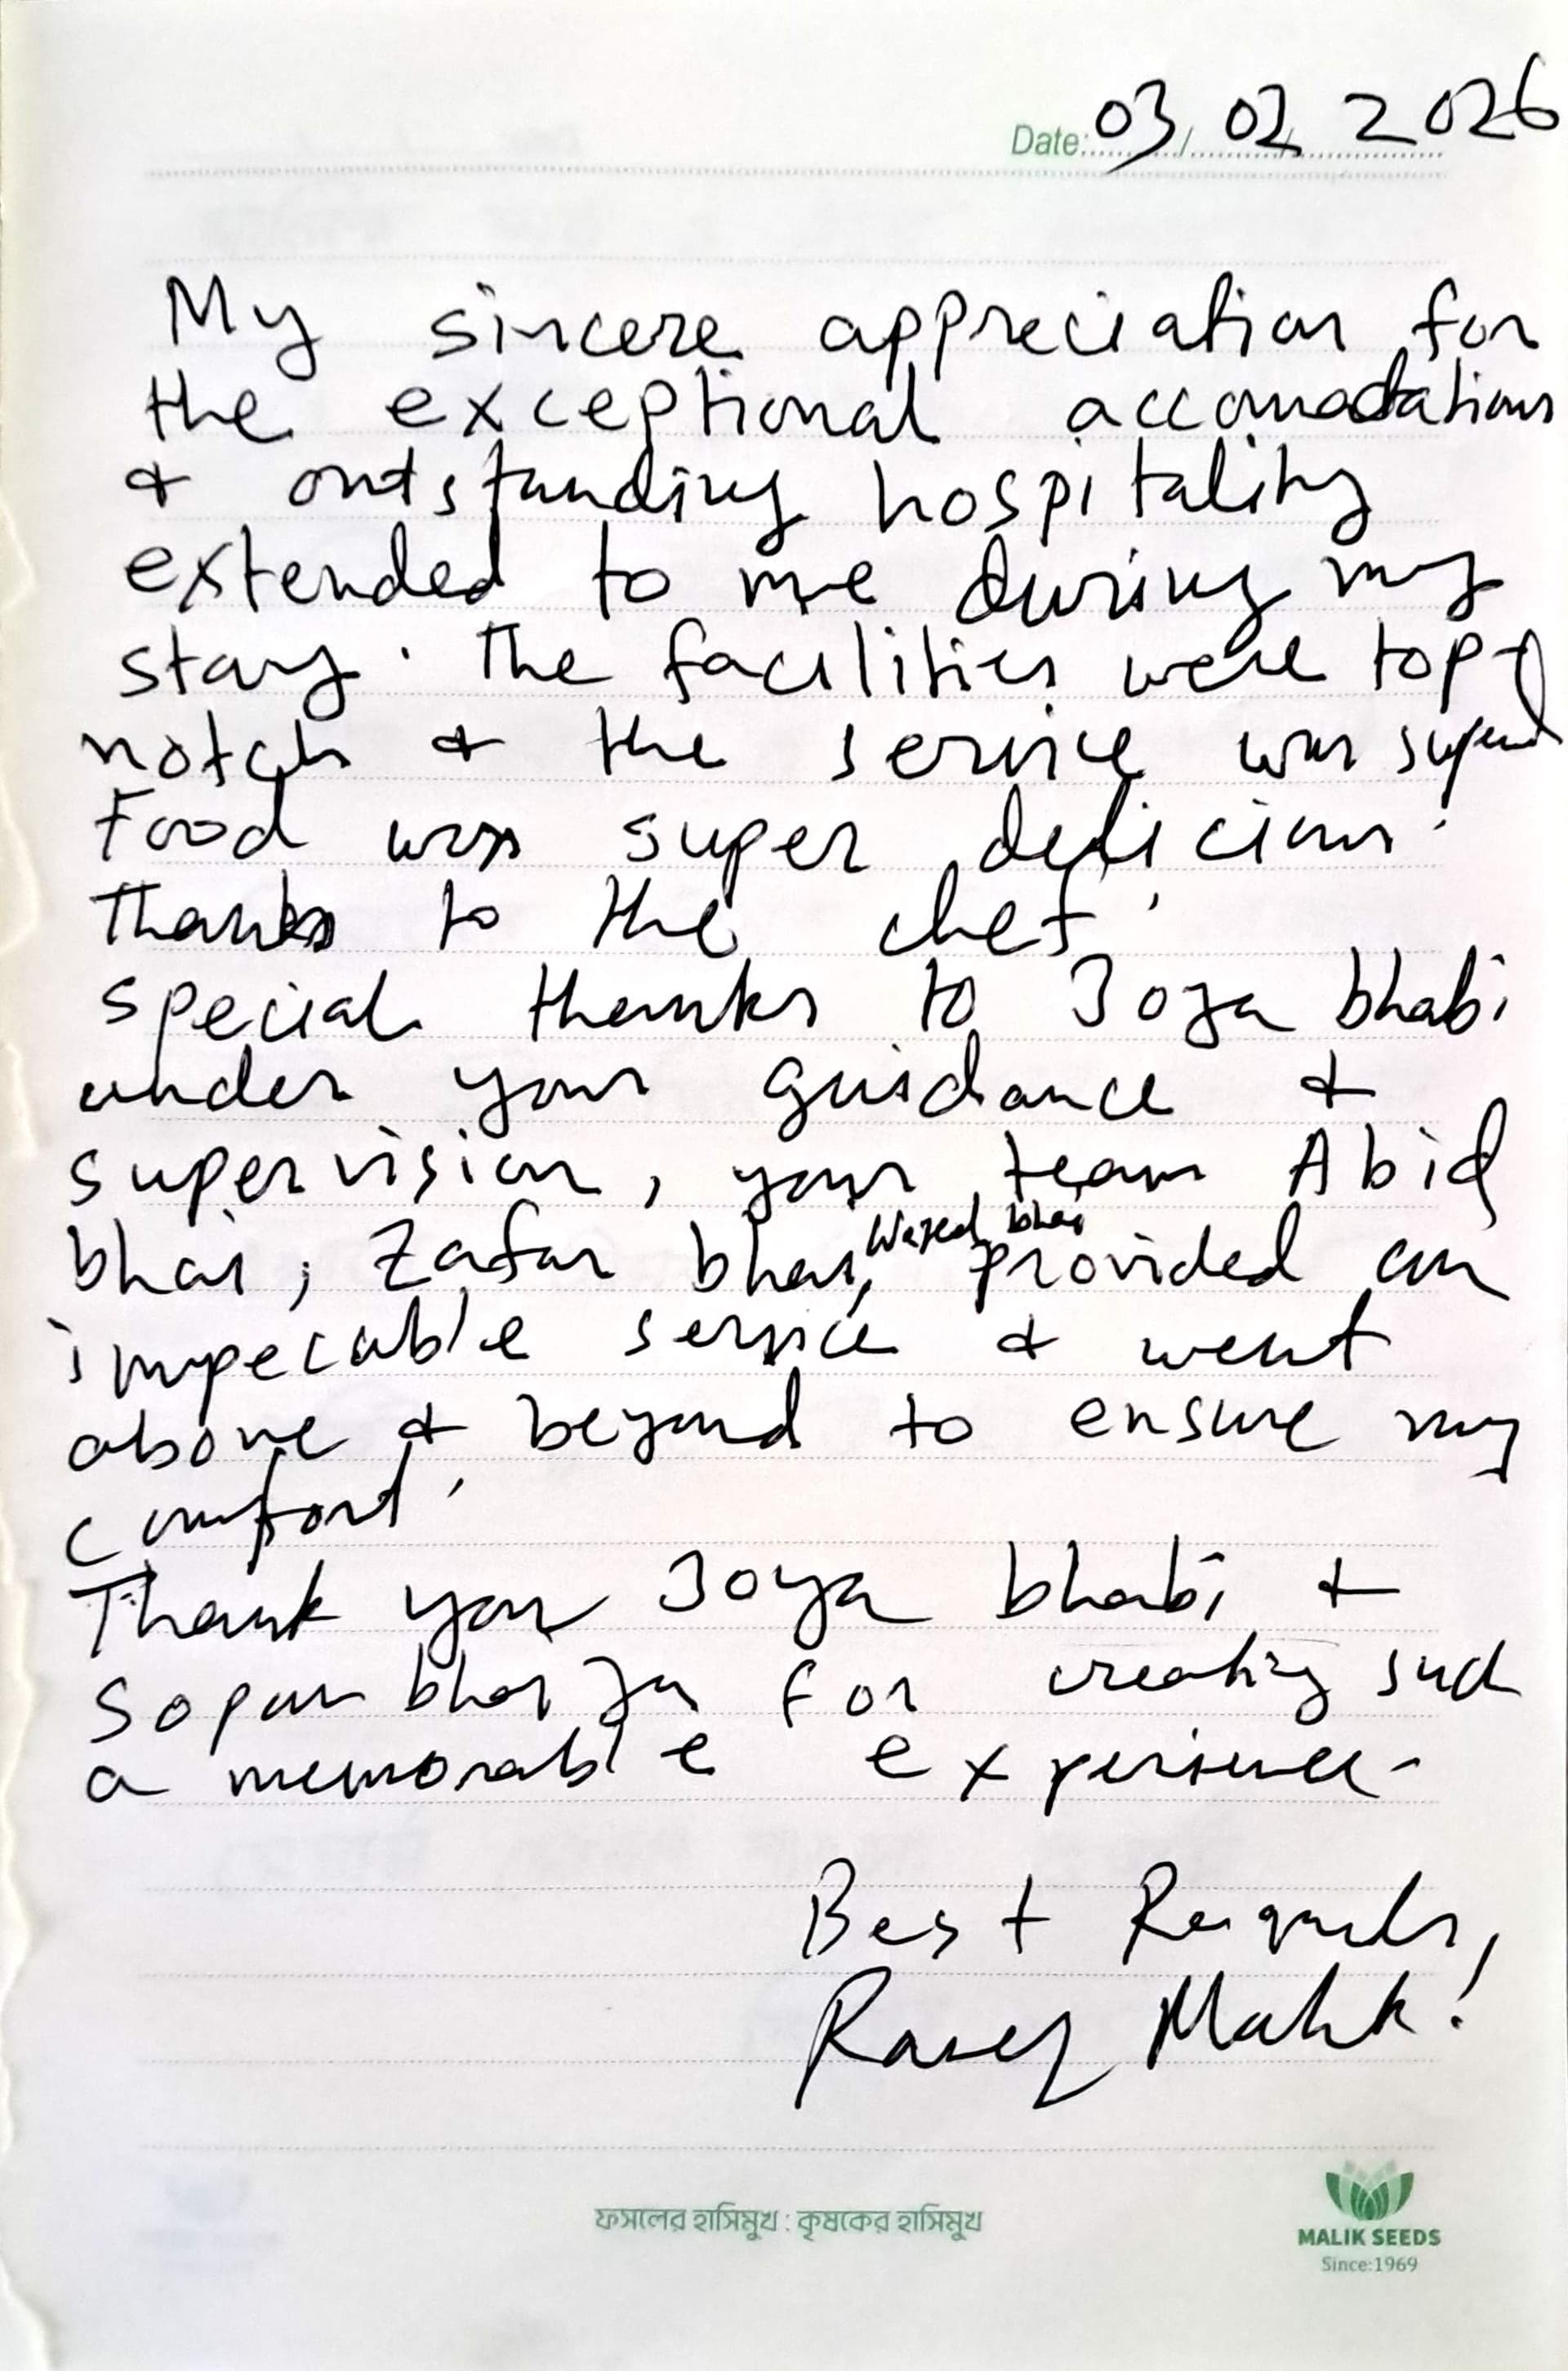 Date: 03/02/2026
My sincere appreciation for
the exceptional accomodations
& outstanding hospitality
extended to me during my
stay. The facilities were top-
notch & the service was superb
Food was super delicious.
Thanks to the chef.
special thanks to Joya bhabi
under your guidance &
supervision, your team Abid
bhai, Zafar bhai, Wazed bhai provided an
impecable service & went
above & beyond to ensure my
comfort.
Thank you Joya bhabi &
Sopan bhaiya for creating such
a memorable experience.
Best Regards,
Malik!
ফসলের হাসিমুখ : কৃষকের হাসিমুখ
MALIK SEEDS
Since:1969